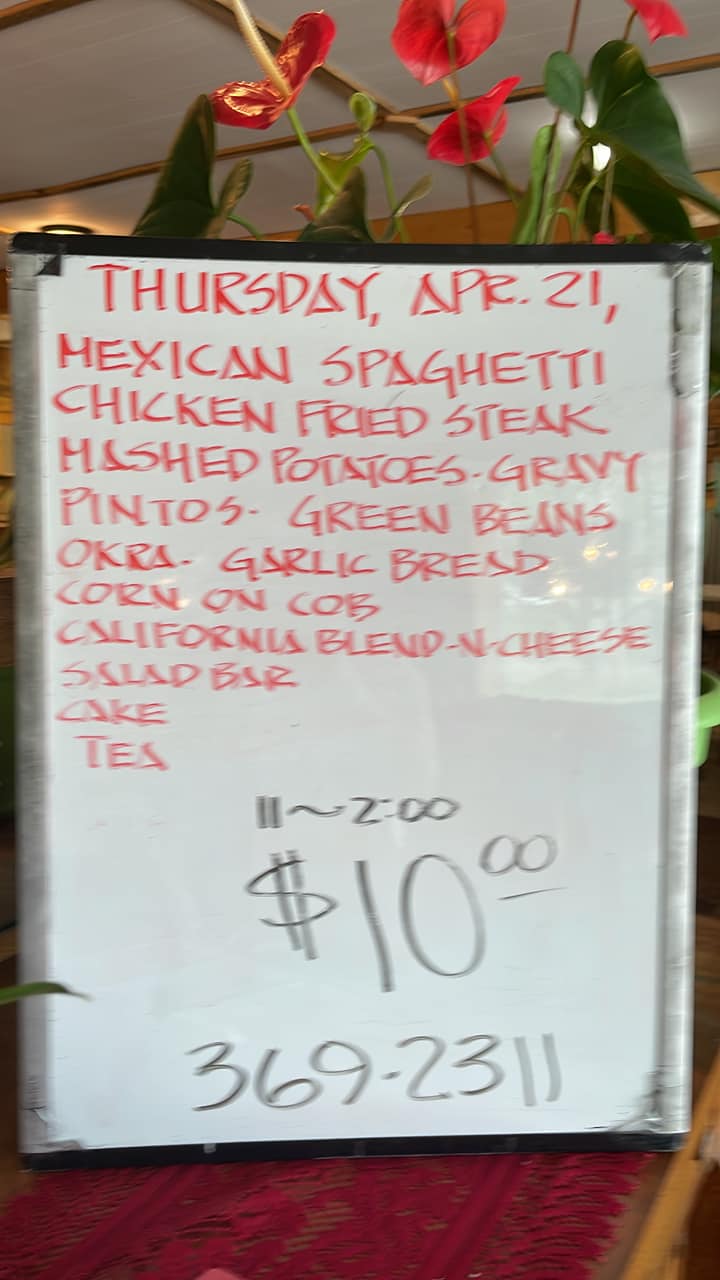 THURSDAY, APR. 21,
MEXICAN SPAGHETTI
CHICKEN FRIED STEAK
MASHED POTATOES. GRAVY
PINTOS. GREEN BEANS
OKRA. GARLIC BREAD
CORN ON COB
CALIFORNIA BLEND-N-CHEESE
SALAD BAR
CAKE
TEA
11~2:00
$10 00
369-2311